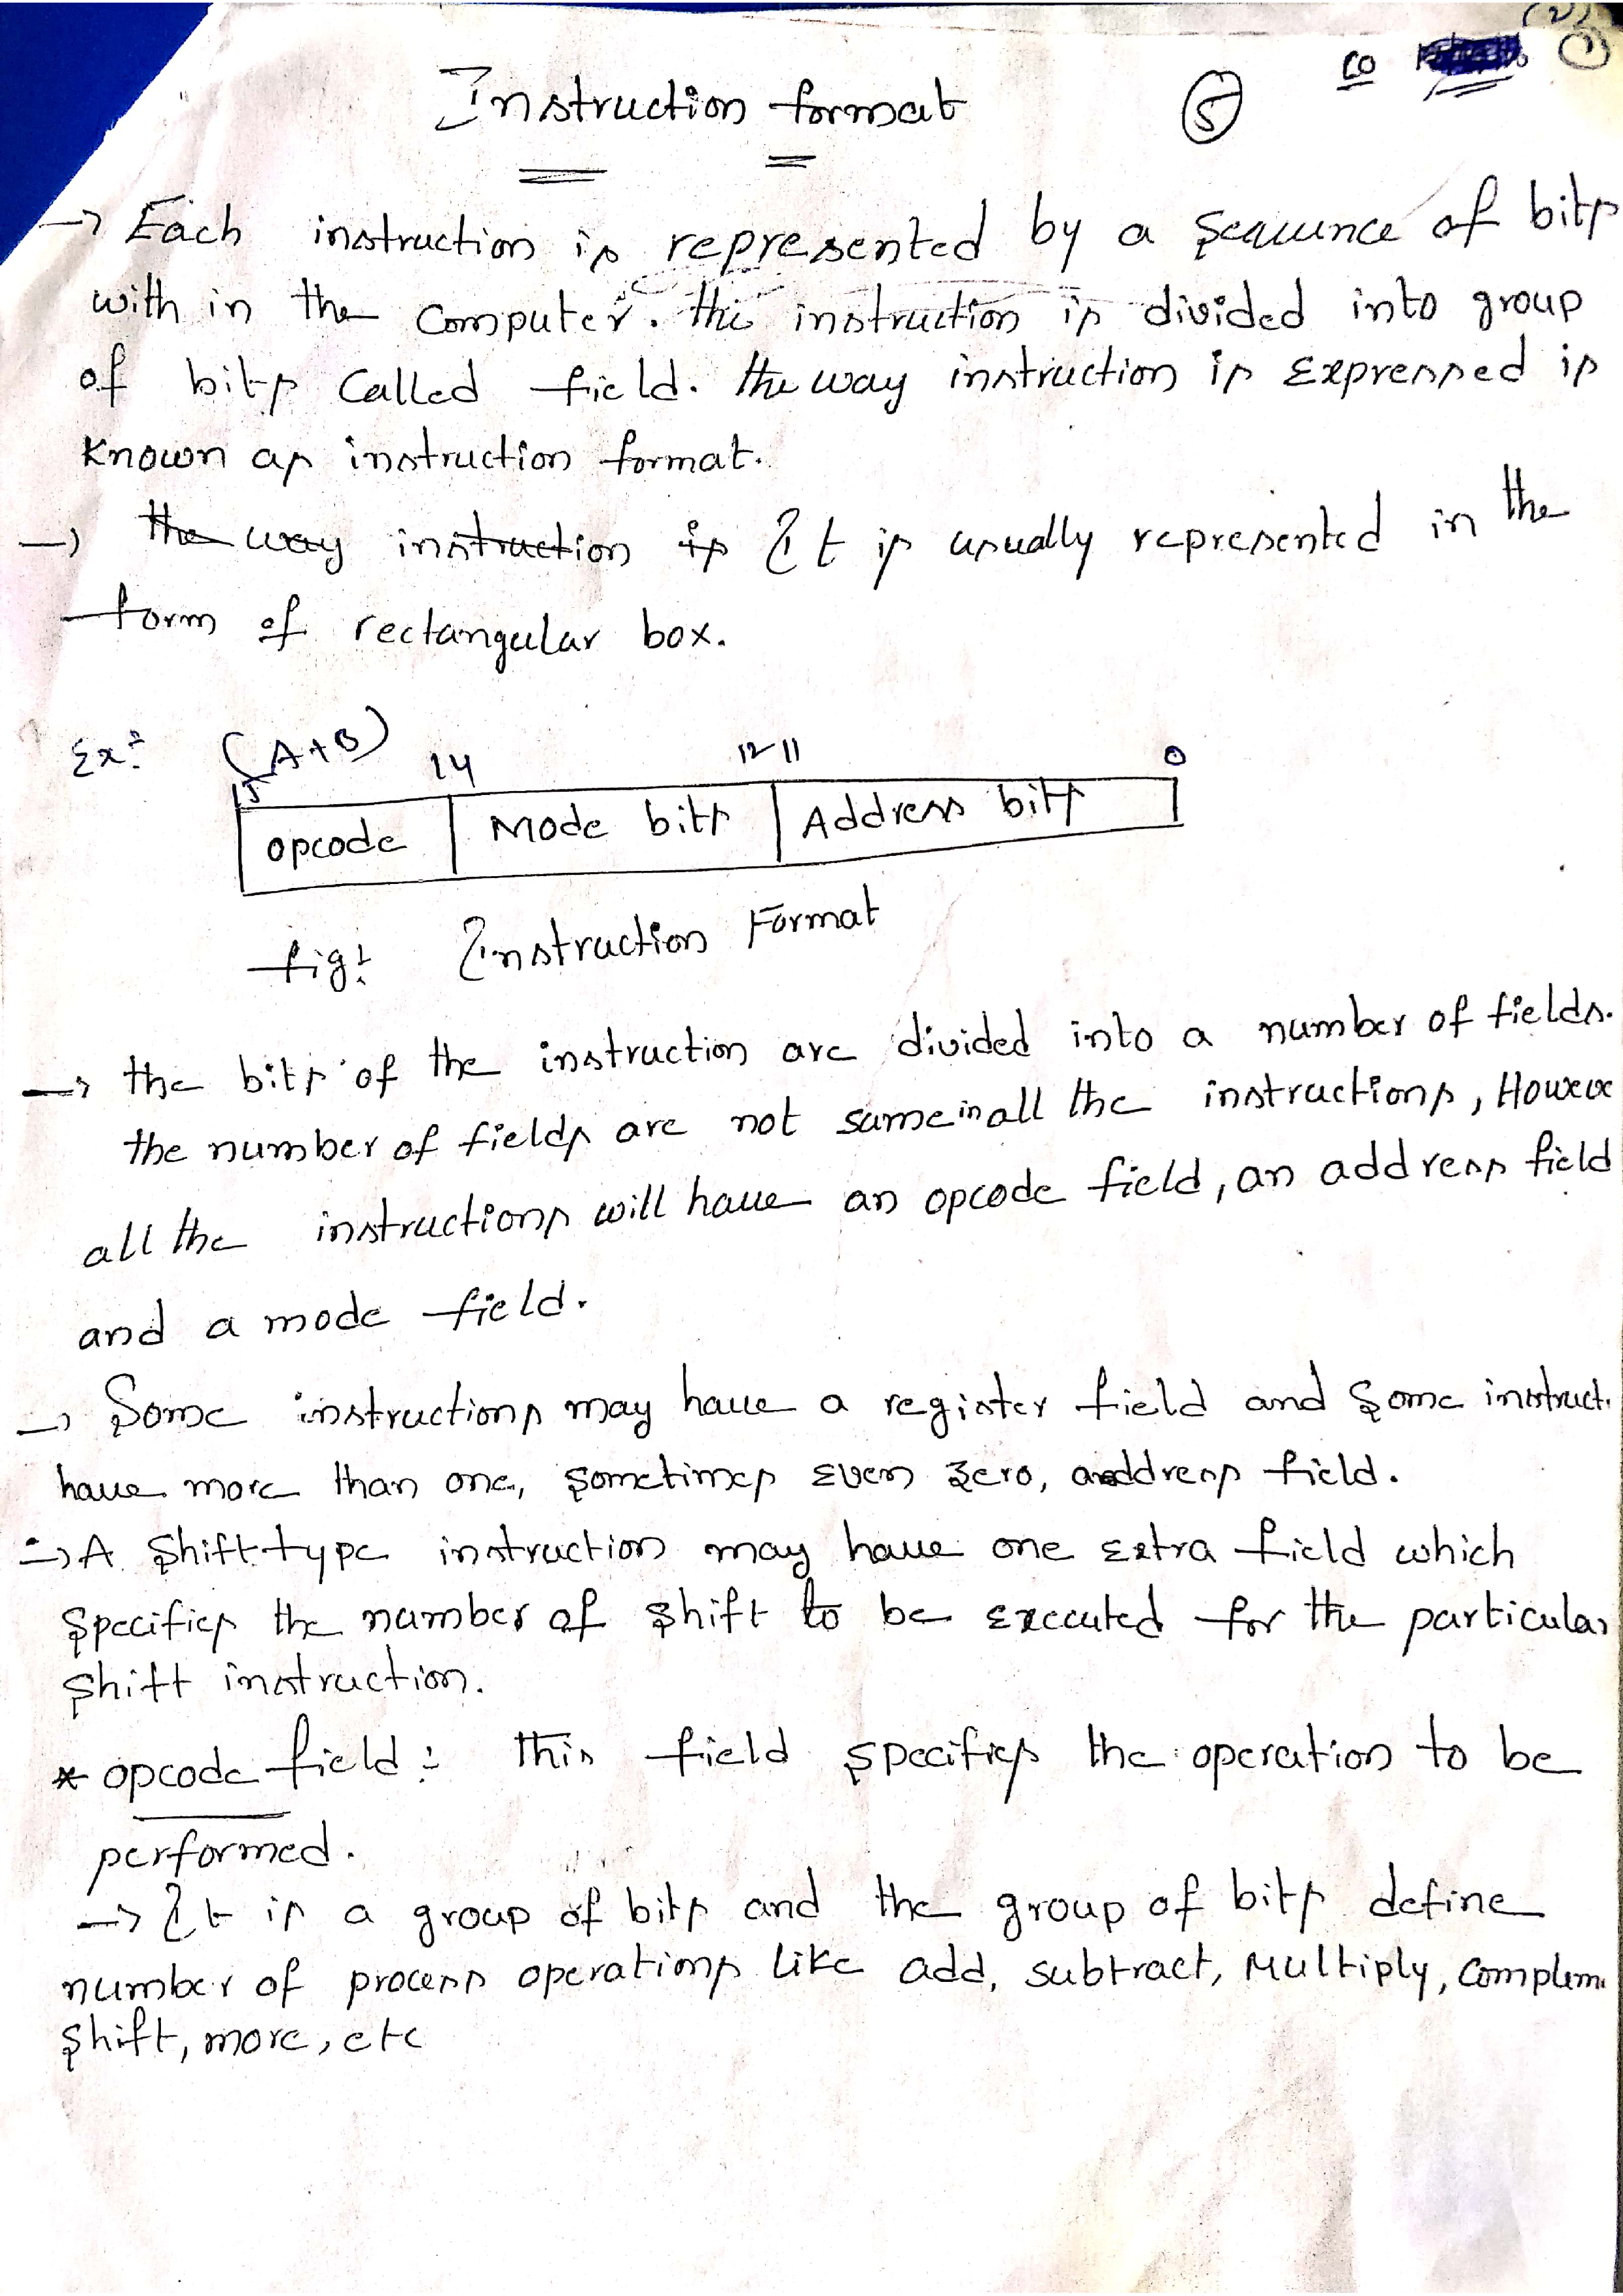 (2)
CO
Instruction format
5
→ Each instruction is represented by a sequence of bits
with in the Computer. this instruction is divided into group
of bits Called field. the way instruction is Expressed is
Known as instruction format.
→ the way instruction is It is usually represented in the
form of rectangular box.
Ex: (A+B)
15 14 12 11 0
opcode Mode bits Address bits
fig: Instruction Format
→ the bits of the instruction are divided into a number of fields.
the number of fields are not same in all the instructions, Howeve
all the instructions will have an opcode field, an address field
and a mode field.
→ Some instructions may have a register field and some instruct.
have more than one, sometimes Even zero, address field.
→ A shift type instruction may have one extra field which
specifies the number of shift to be executed for the particular
shift instruction.
* opcode field: this field specifies the operation to be
performed.
→ It is a group of bits and the group of bits define
number of process operations like add, subtract, Multiply, Complem
shift, more, etc